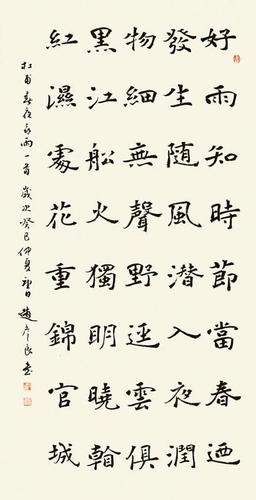 好雨知時節當春迺
發生随風潛入夜潤
物細無聲野迳雲俱
黑江船火獨明曉
紅濕處花重錦官城
杜甫春夜喜雨一首 歲次癸巳仲夏 日 趙彦良書